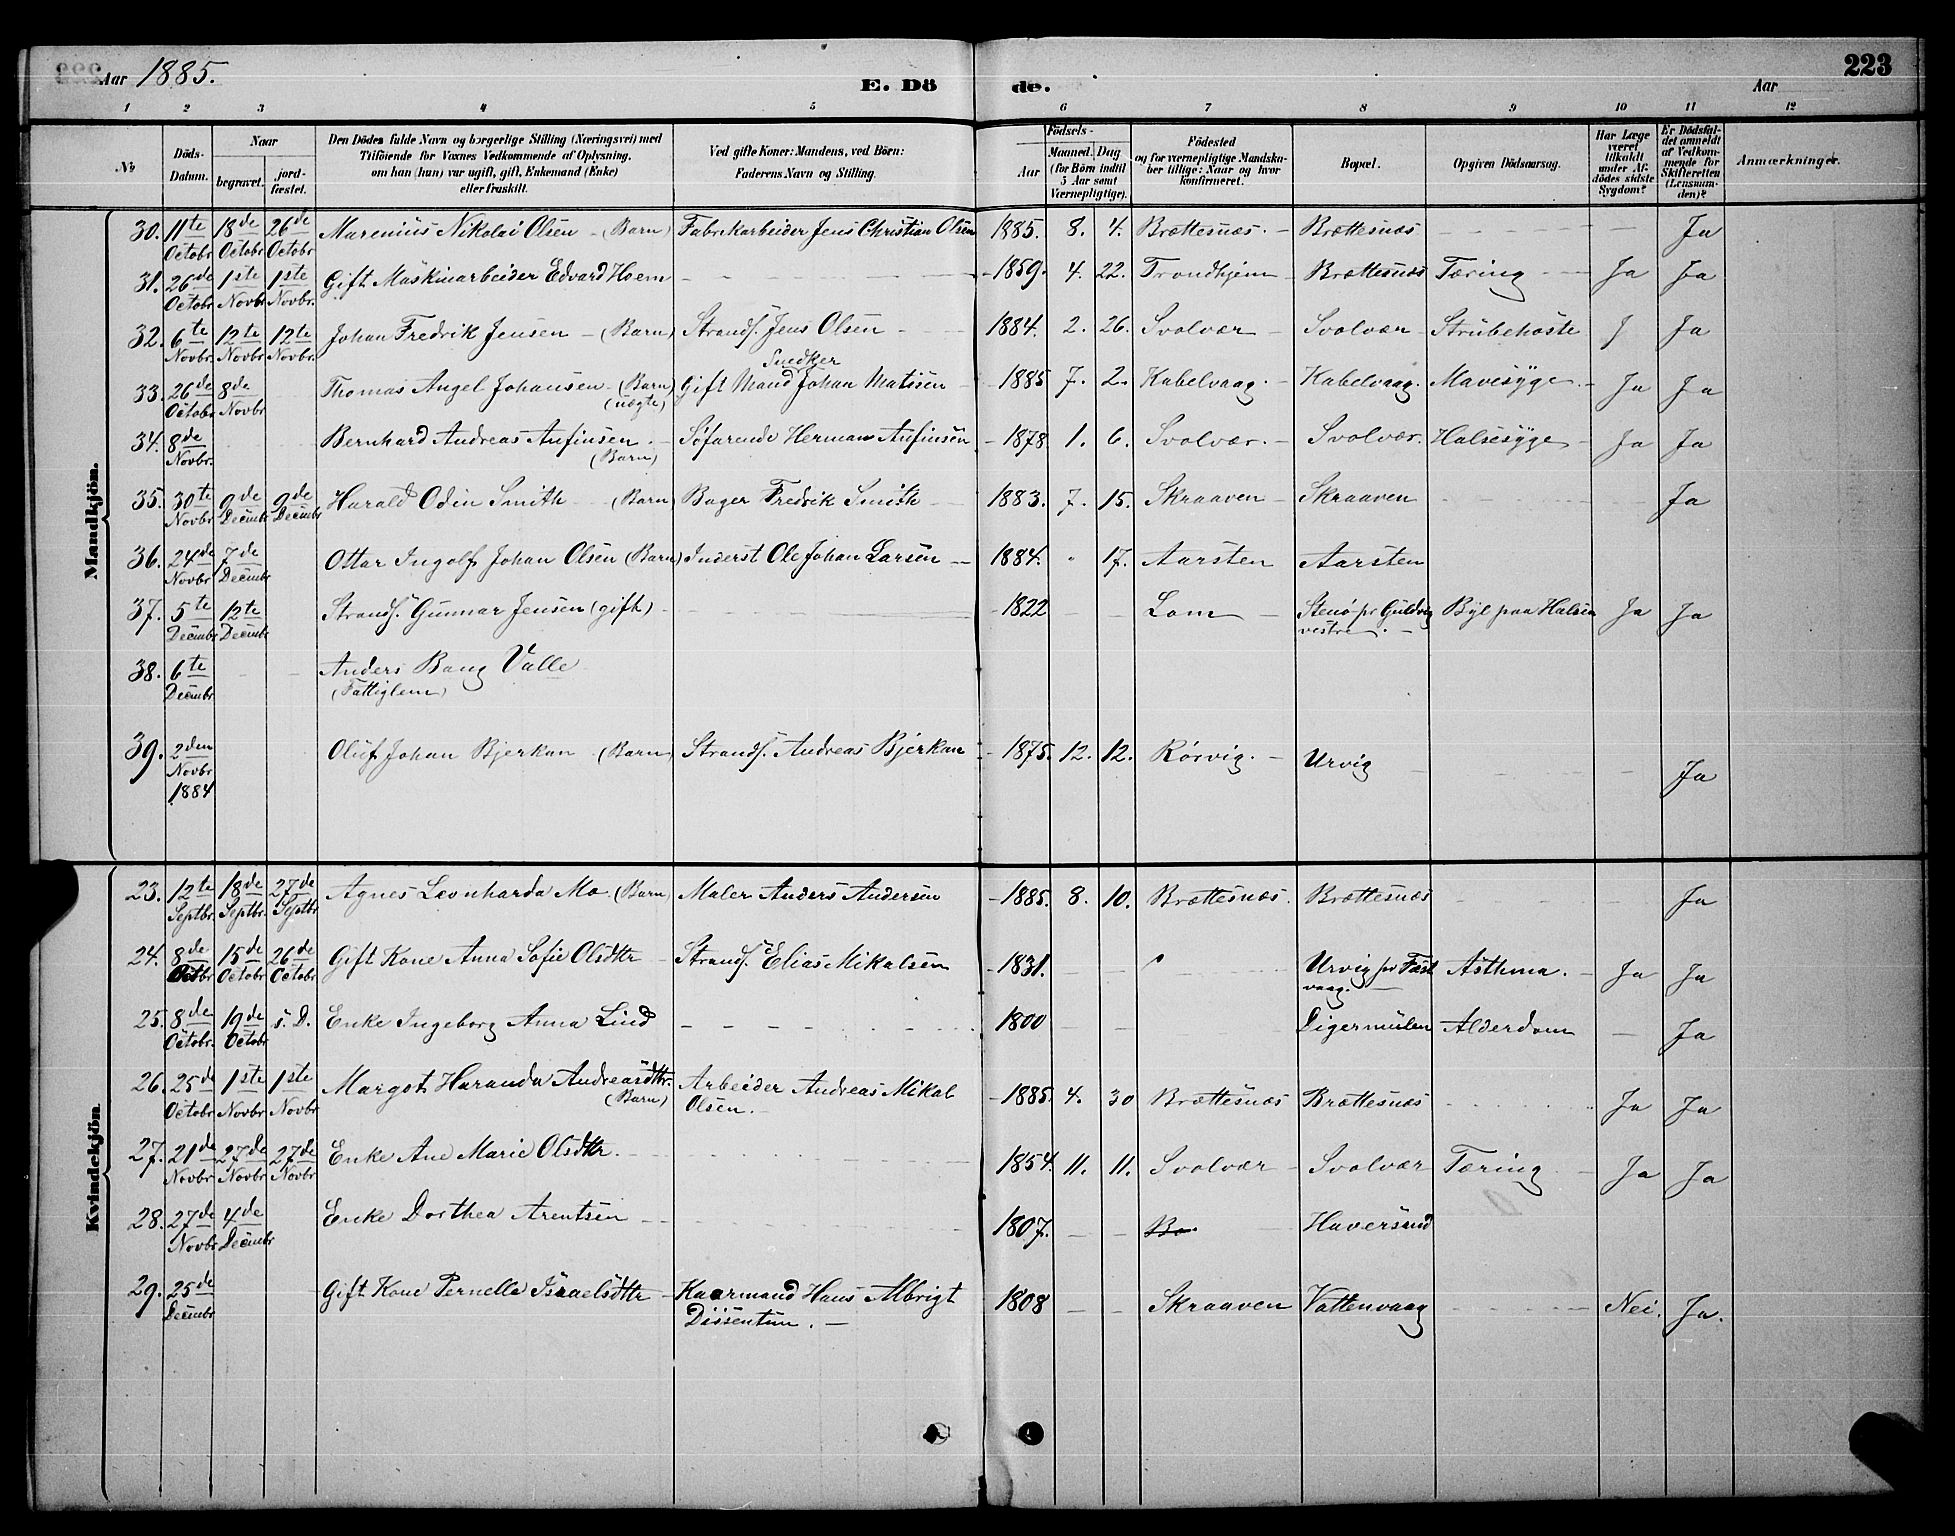 Aar 1885.
E. Dö de.
Aar
223
1 2 3 4 5 6 7 8 9 10 11 12
No
Döds-Datum.
Naar
begravet.
jord-fæstet.
Den Dödes fulde Navn og borgerlige Stilling (Næringsvei) med
Tilföiende for Voxnes Vedkommende af Oplysning,
om han (hun) var ugift, gift, Enkemand (Enke)
eller fraskilt.
Ved gifte Koner: Mandens, ved Börn:
Faderens Navn og Stilling.
Födsels-
Aar
Maaned. Dag
(for Börn indtil
5 Aar samt
Værnepligtige).
Födested
og for værnepligtige Mandska-
ber tillige: Naar og hvor
konfirmeret.
Bopæl.
Opgiven Dödsaarsag.
Har Læge
været
tilkaldt
under Af-
dödes sidste
Sygdom?
Er Dödsfal-
det anmeldt
af Vedkom-
mende for
Skifteretten
(Lensman-
den)?
Anmærkninger.
Mandkjön.
30. 11te Octobr 18de Octobr 26de Octobr Marenius Nikolai Olsen (Barn) Fabrikarbeider Jens Christian Olsen 1885. 8. 4. Brættesnæs. Brættesnæs Ja
31. 26de Octobr 1ste Novbr 1ste Novbr. Gift Maskinarbeider Edvard Hoem 1859. 4. 22. Trondhjem Brættesnæs Tæring Ja Ja
32. 6te Novbr. 12te Novbr 12te Novbr. Johan Fredrik Jensen (Barn) Strands. Jens Olsen 1884. 2. 26. Svolvær Svolvær Strubehoste J Ja
33. 26de Octobr 8de Novbr Thomas Angel Johansen (Barn) (uægte) Gift Mand Snedker Johan Matisen 1885 7. 2. Kabelvaag. Kabelvaag. Mavesyge. Ja Ja
34. 8de Novbr. Bernhard Andreas Anfinsen. (Barn) Søfarende Herman Anfinsen 1878 1. 6. Svolvær. Svolvær. Halsesyge Ja Ja
35. 30te Novbr 9de Decembr 9de Decembr Harald Odin Smith (Barn) Bager Fredrik Smith 1883. 7. 15. Skraaven Skraaven Ja
36. 24de Novbr 7de Decembr Ottar Ingolf Johan Olsen (Barn) Inderst Ole Johan Larsen 1884. " 17. Aarsten Aarsten
37. 5te Decembr 12te Decembr Strands. Gunnar Jensen (gift) 1822 Lom Stenø pr Guldvig vestre. Byl paa Halsen Ja Ja
38. 6te Decembr Anders Bang Valle
(Fattiglem)
39. 2den Novbr 1884 Oluf Johan Bjerkan (Barn) Strands. Andreas Bjerkan 1875. 12. 12. Rørvig. Urvig Ja
Kvindekjön.
23. 12te Septbr. 18de Septbr. 27de Septbr Agnes Leonharda Mo (Barn) Maler Anders Andersen 1885. 8. 10. Brættesnæs. Brættesnæs Ja
24. 8de Octbr 15de Octobr 26de Octobr Gift Kone Anna Sofie Olsdtr Strands. Elias Mikalsen 1831. Urvig pr Fæst vaag. Asthma. Ja Ja
25. 8de Octobr. 19de Octobr s. D. Enke Ingeborg Anna Lind 1800 Digermulen Alderdom Ja
26. 25de Octobr 1ste Novbr 1ste Novbr Margot Haranda Andreasdtr. (Barn) Arbeider Andreas Mikal Olsen. 1885. 4. 30 Brættesnæs Brættesnæs Ja Ja
27. 21de Novbr 27de Novbr 27de Novbr Enke Ane Marie Olsdtr. 1854. 11. 11. Svolvær Svolvær Tæring Ja Ja
28. 27de Novbr 4de Decembr Enke Dorthea Arentsen 1807. Haversund
29. 25de Decembr Gift Kone Pernelle Israelsdtr Kaarmand Hans Albrigt Dissentum. 1808 Skraaven Vattenvaag Nei. Ja.